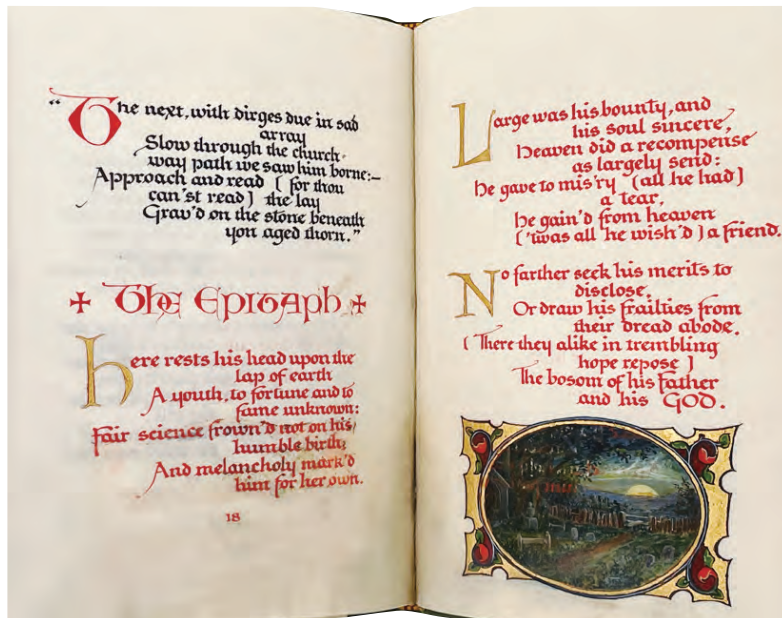 “The next, with dirges due in sad
array
Slow through the church-
way path we saw him borne:—
Approach and read [ for thou
can'st read ] the lay
Grav'd on the stone beneath
yon aged thorn.”
The Epitaph
Here rests his head upon the
lap of earth
A youth, to fortune and to
fame unknown:
Fair science frown'd not on his
humble birth;
And melancholy mark'd
him for her own.
18
Large was his bounty, and
his soul sincere,
Heaven did a recompense
as largely send:
He gave to mis'ry (all he had)
a tear,
he gain'd from heaven
('twas all he wish'd) a friend.
No farther seek his merits to
disclose,
Or draw his frailties from
their dread abode,
( There they alike in trembling
hope repose )
The bosom of his father
and his GOD.